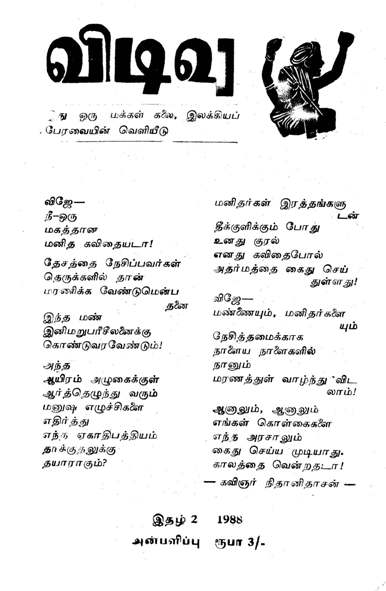 விடிவு
இது ஒரு மக்கள் கலை, இலக்கியப்
பேரவையின் வெளியீடு
விஜே—
நீ-ஒரு
மகத்தான
மனித கவிதையடா!
தேசத்தை நேசிப்பவர்கள்
தெருக்களில் தான்
மரணிக்க வேண்டுமென்ப
தனை
இந்த மண்
இனிமறுபரிசீலனைக்கு
கொண்டுவரவேண்டும்!
அந்த
ஆயிரம் அழுகைக்குள்
ஆர்த்தெழுந்து வரும்
மனுஷ எழுச்சிகளை
எதிர்த்து
எந்த ஏகாதிபத்தியம்
தாக்குதலுக்கு
தயாராகும்?
மனிதர்கள் இரத்தங்களு
டன்
தீக்குளிக்கும் போது
உனது குரல்
எனது கவிதைபோல்
அதர்மத்தை கைது செய்
துள்ளது!
விஜே—
மண்ணையும், மனிதர்களை
யும்
நேசித்தமைக்காக
நாளைய நாளைகளில்
நானும்
மரணத்துள் வாழ்ந்து விட
லாம்!
ஆனாலும், ஆனாலும்
எங்கள் கொள்கைகளை
எந்த அரசாலும்
கைது செய்ய முடியாது.
காலத்தை வென்றதடா!
— கவிஞர் நிதானிதாசன் —
இதழ் 2 1988
அன்பளிப்பு ரூபா 3/-